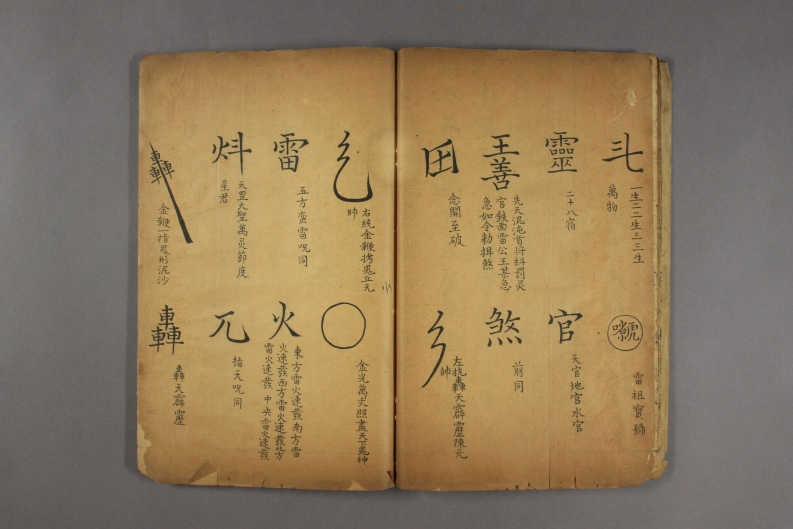 一生二二生三三生
萬物
雷祖寶號
靈
二十八宿
官
天官地官水官
王善
先天混沌首將糾罰灵
官鉄面雷公王某急
急如令勅揖煞
煞
前同
念開至破
左抗轟天霹靂陳元
帥
右統金鞭拷鬼立元
帥
○
金光萬丈照盡天下鬼神
雷
五方蛮雷呪同
火
東方雷火速發南方雷
火速發西方雷火速發北方
雷火速發中央雷火速發
炓
天罡大聖萬灵節度
星君
兀
指天呪同
轟
金鞭一指鬼形泥沙
轟
轟天霹靂